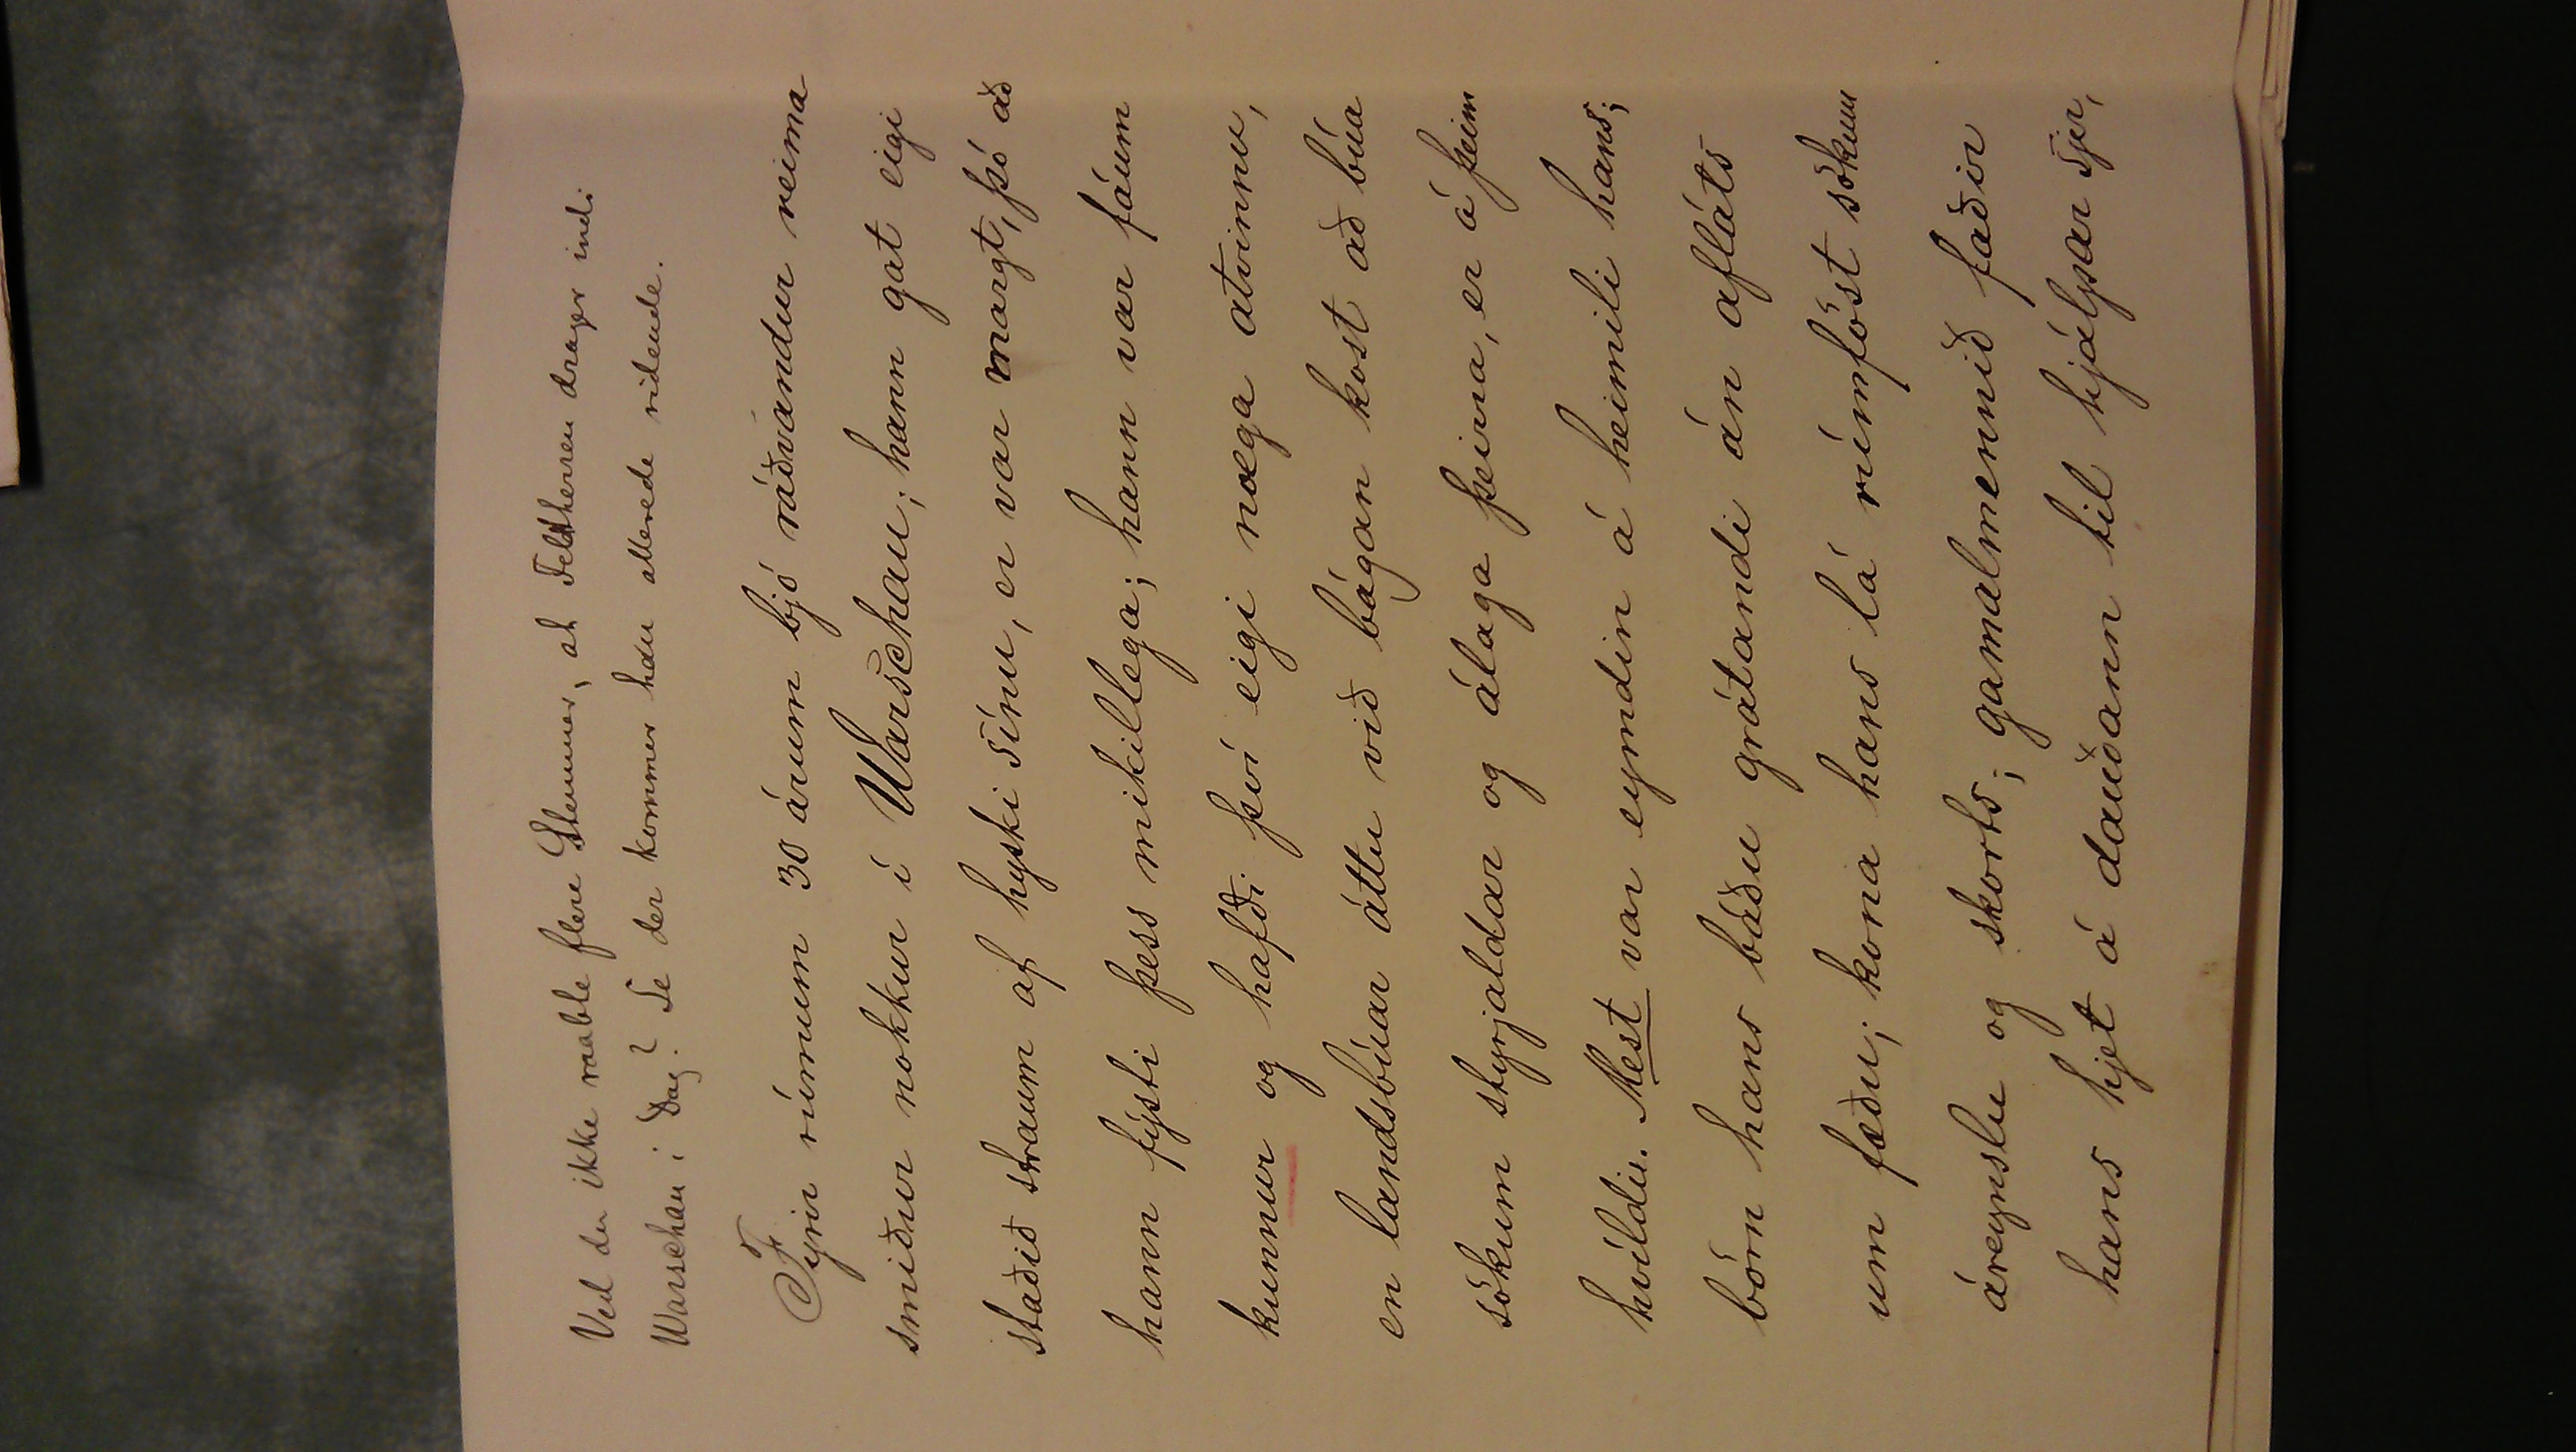 Ved du ikke raable flere Stemmer, at Feltherren drager ind i
Warschau i Dag? Se der kommer han allerede ridende.
Fyrir rúmum 30 árum bjó ráðvandur reima
smiður nokkur í Warschau; hann gat eigi
staðið straum af hyski sínu, er var margt, þó að
hann fýsti þess mikillega; hann var fáum
kunnur og hafði því eigi nóga atvinnu,
en landsbúar áttu við bágan kost að búa
sökum styrjaldar og álaga þeirra, er á þeim
hvíldu. Mest var eymdin á heimili hans;
börn hans báðu grátandi án afláts
um fæðu; kona hans lá rúmföst sökum
áreynslu og skorts; gamalmennið faðir
hans hjet á dauðann til hjálpar sjer,